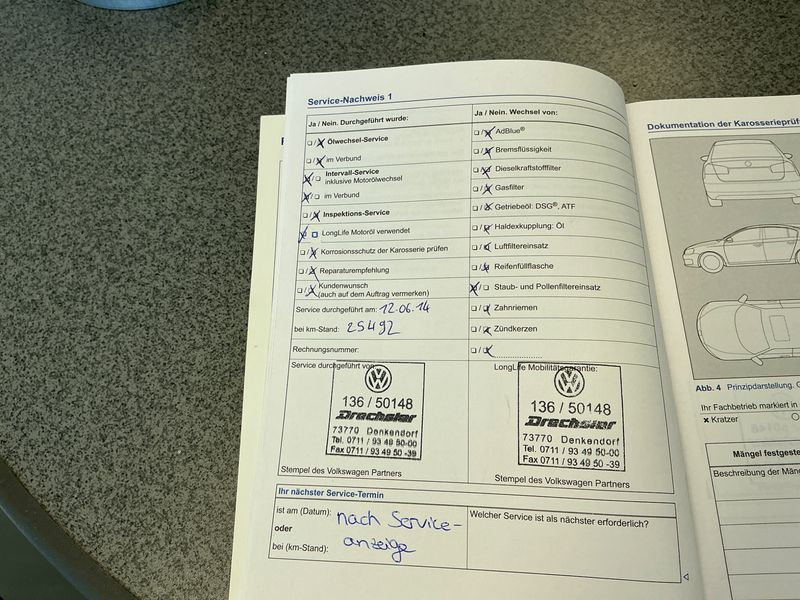 Service-Nachweis 1
Ja / Nein. Durchgeführt wurde:
Ölwechsel-Service
im Verbund
Intervall-Service
inklusive Motorölwechsel
im Verbund
Inspektions-Service
LongLife Motoröl verwendet
Korrosionsschutz der Karosserie prüfen
Reparaturempfehlung
Kundenwunsch
(auch auf dem Auftrag vermerken)
Service durchgeführt am: 12.06.14
bei km-Stand: 25492
Rechnungsnummer:
Service durchgeführt von:
136 / 50148
Drechsler
73770 Denkendorf
Tel. 0711 / 93 49 50-00
Fax 0711 / 93 49 50 -39
Stempel des Volkswagen Partners
Ja / Nein. Wechsel von:
AdBlue®
Bremsflüssigkeit
Dieselkraftstofffilter
Gasfilter
Getriebeöl: DSG®, ATF
Haldexkupplung: Öl
Luftfiltereinsatz
Reifenfüllflasche
Staub- und Pollenfiltereinsatz
Zahnriemen
Zündkerzen
LongLife Mobilitätsgarantie:
136 / 50148
Drechsler
73770 Denkendorf
Tel. 0711 / 93 49 50-00
Fax 0711 / 93 49 50 -39
Stempel des Volkswagen Partners
Ihr nächster Service-Termin
ist am (Datum): nach Service-
oder
bei (km-Stand): anzeige
Welcher Service ist als nächster erforderlich?
Dokumentation der Karosserieprüf
Abb. 4 Prinzipdarstellung.
Ihr Fachbetrieb markiert in
× Kratzer
Mängel festgeste
Beschreibung der Män